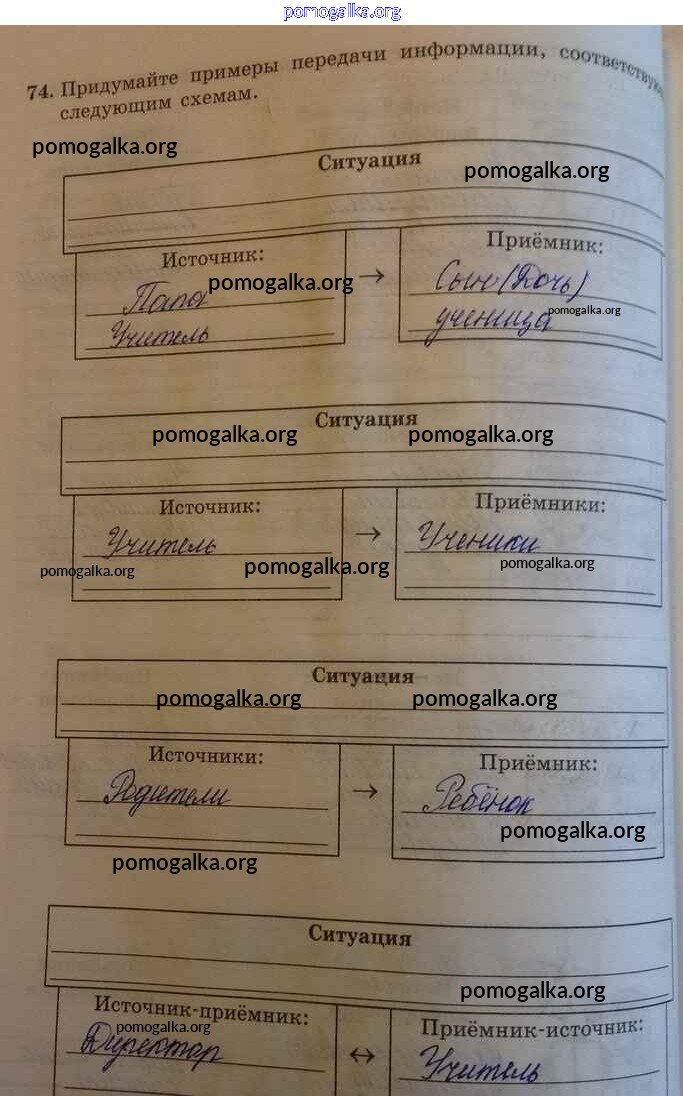 pomogalka.org
74. Придумайте примеры передачи информации, соответствую
следующим схемам.
pomogalka.org
Ситуация
pomogalka.org
Источник:
Приёмник:
→
pomogalka.org
Папа
Сын (Дочь)
pomogalka.org
Учитель
ученица
Ситуация
pomogalka.org
pomogalka.org
Источник:
Приёмники:
→
Учитель
Ученики
pomogalka.org
pomogalka.org
pomogalka.org
Ситуация
pomogalka.org
pomogalka.org
Источники:
Приёмник:
→
Родители
Ребёнок
pomogalka.org
pomogalka.org
Ситуация
pomogalka.org
Источник-приёмник:
Приёмник-источник:
pomogalka.org
↔
Директор
Учитель